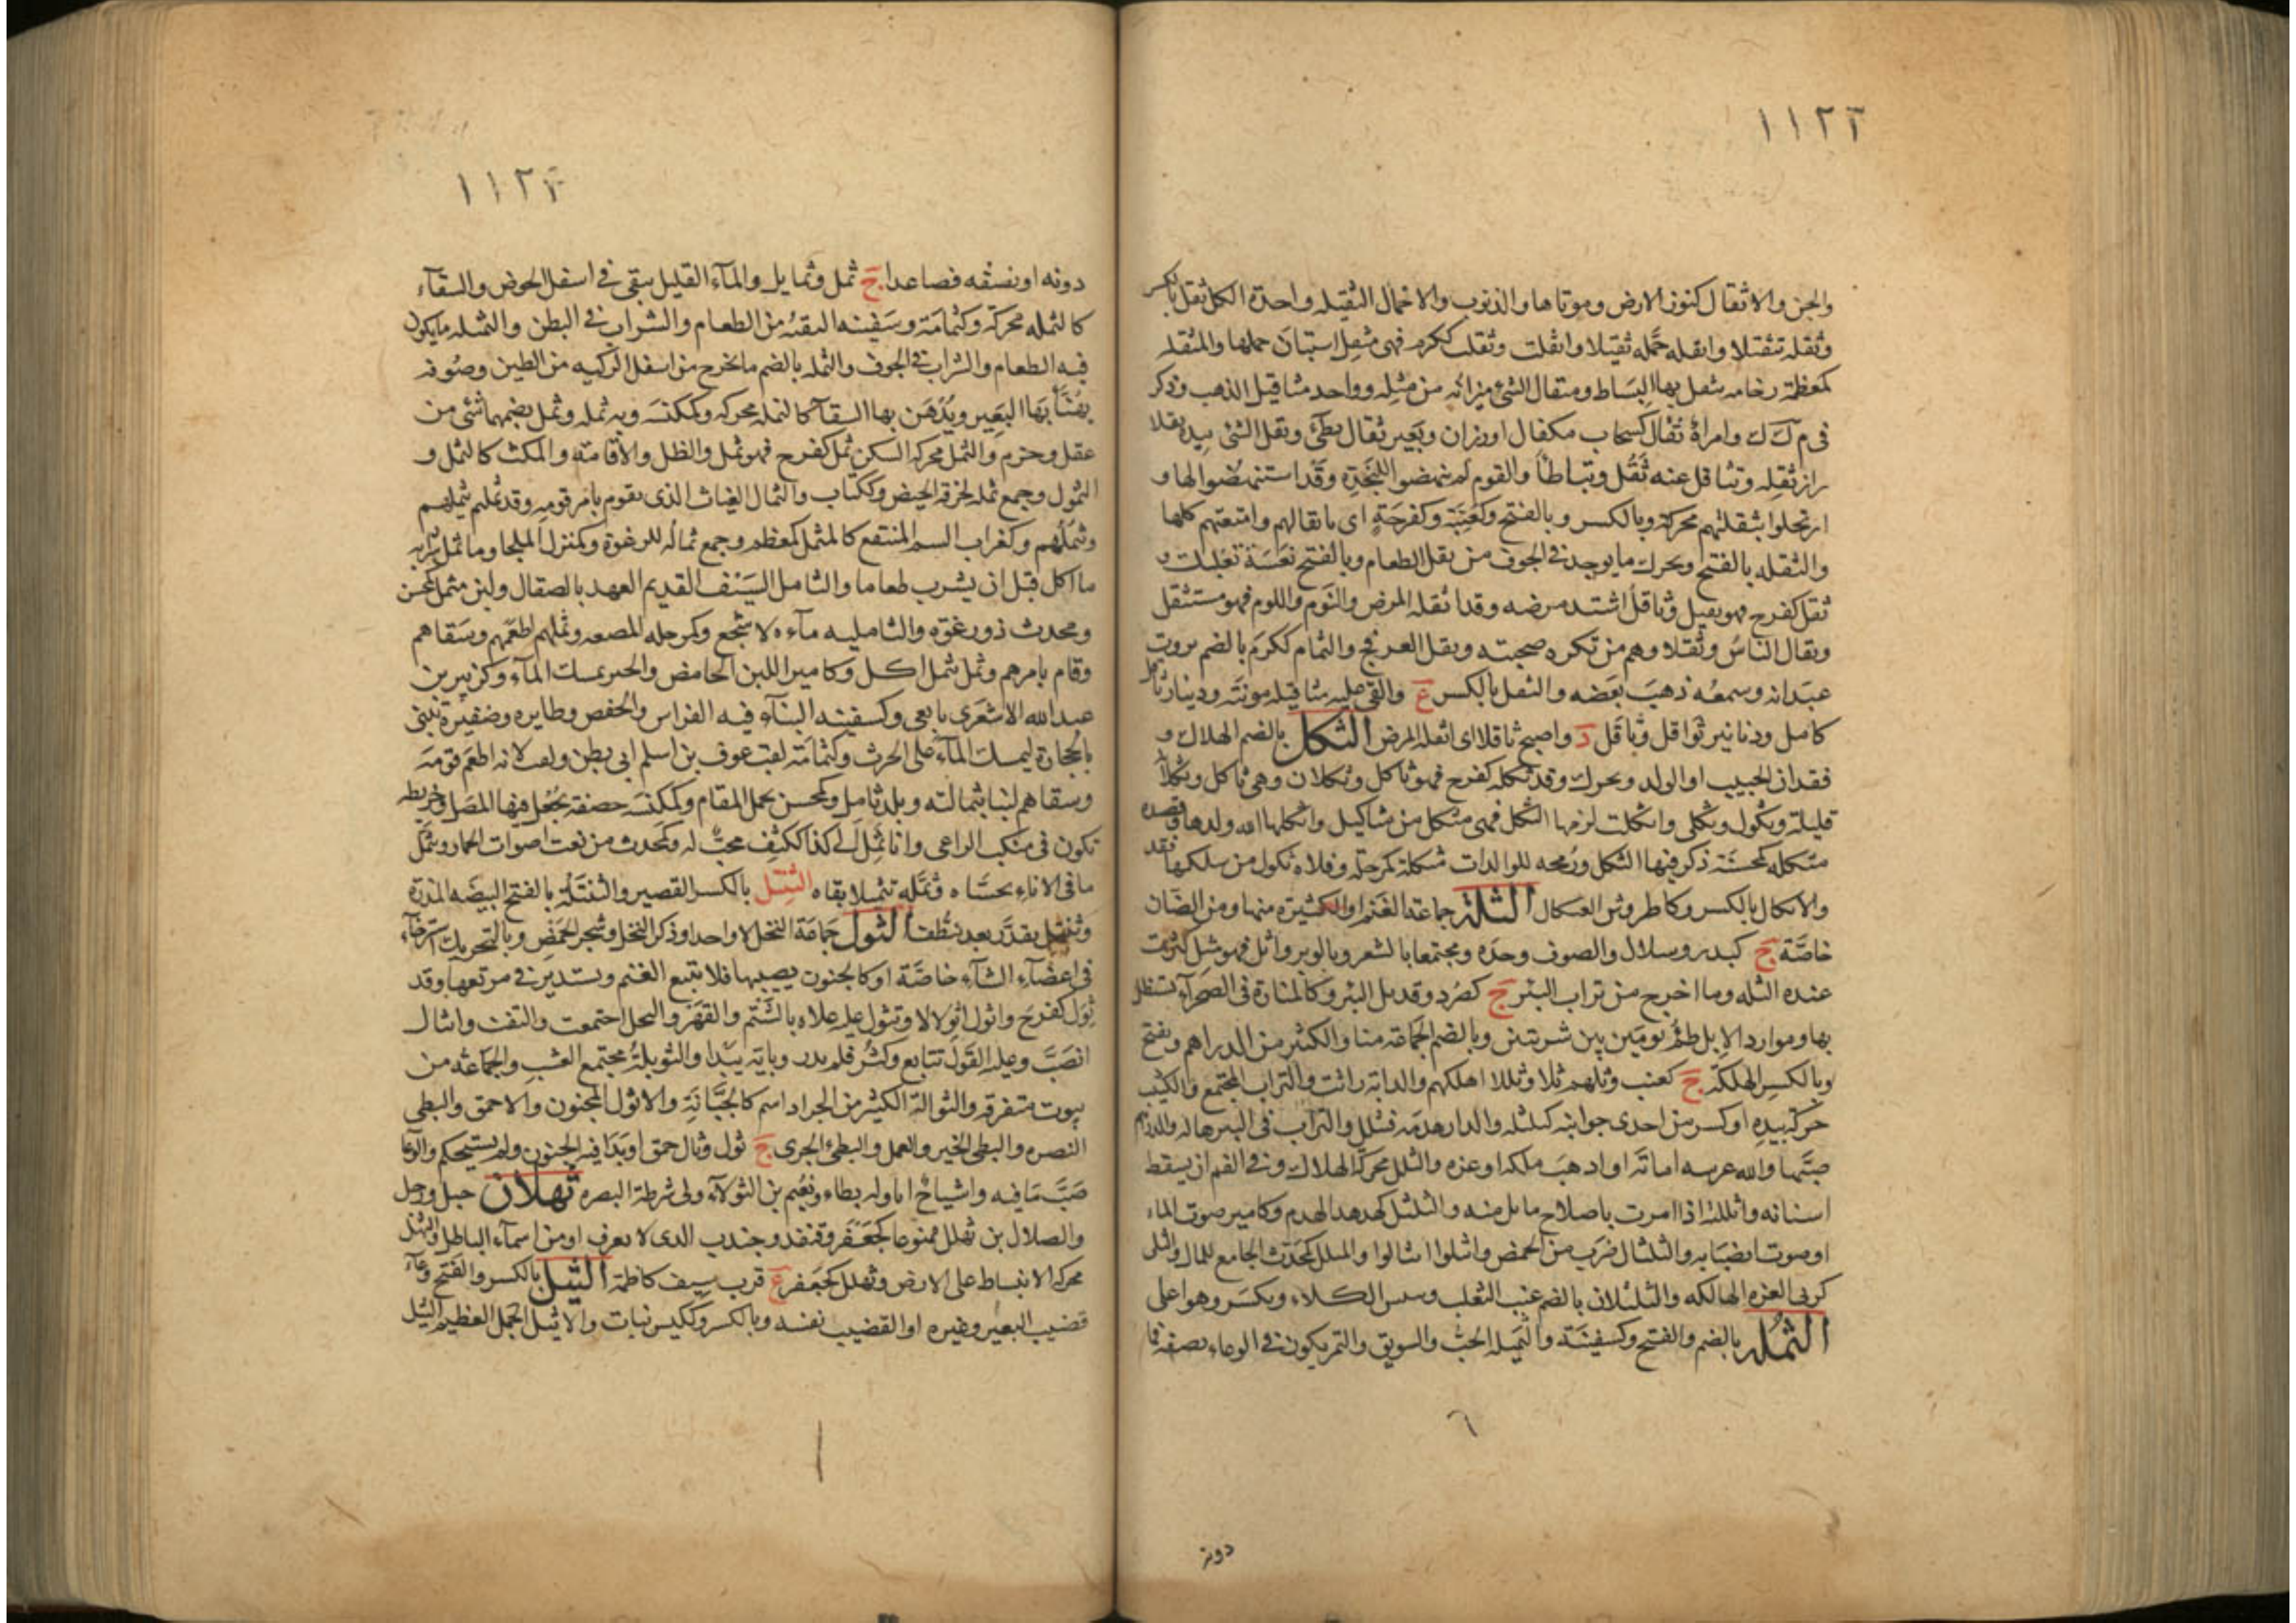 ١١٢٢
والجن والاثقال كنوز الارض وموتاها والذنوب والاحمال الثقيله واحدة الكل ثقل بالكسر
وثقله تثقيلا واثقله حمله ثقيلا واثقلت وثقلت ككرم فهى مثقل استبان حملها والمثقله
كمعظمة رخامه يثقل بها البساط ومثقال الشئ ميزانه من مثله وواحد مثاقيل الذهب وذكر
فى م ك ك وامراة ثقال كسحاب مكفال اورزان وبعير ثقال بطئ وثقل الشئ بيده ثقلا
راز ثقله وتثاقل عنه ثقل وتباطأ والقوم لم ينهضوا للنجدة وقد استنهضوا لها و
ارتحلوا بثقلتهم محركة وبالكسر وبالفتح وكعنبة وكفرحة اى باثقالهم وامتعتهم كلها
والثقله بالفتح ويحرك ما يوجد فى الجوف من ثقل الطعام وبالفتح نعسة تغلبك و
ثقل كفرح فهو ثقيل وثاقل اشتد مرضه وقد اثقله المرض والنوم واللوم فهو مستثقل
وثقال الناس وثقلاوهم من تكره صحبته وثقل العرفج والثمام ككرم بالضم تروت
عيدانه وسمعه ذهب بعضه والثقل بالكسر ع والقى عليه مثاقيله مونته ودينار ثاقل
كامل ودنانير ثواقل وثاقل د واصبح ثاقلا اى اثقله المرض الثكل بالضم الهلاك و
فقدان الحبيب او الولد ويحرك وقد ثكله كفرح فهو ثاكل وثكلان وهى ثاكل وثكلانة
قليلة وثكول وثكلى واثكلت لزمها الثكل فهى مثكل من مثاكيل واثكلها الله ولدها وقصيدة
مثكله كمحسنة ذكر فيها الثكل ورمحه للوالدات مثكلة كمرحلة وفلاة ثكول من سلكها فقد
والاثكال بالكسر وكاطروش العثكال الثلة جماعة الغنم او الكثيرة منها ومن الضان
خاصة ج كبدر وسلال والصوف وحده ومجتمعا بالشعر وبالوبر واثل فهو مثل كثرت
عنده الثله وما اخرج من تراب البئر ج كصرد وقد ثل البئر وكالمنارة فى الصحراء تستظل
بها وموارد الابل ظمؤ يومين بين شربتين وبالضم الجماعة منا والكثير من الدراهم وتفتح
وبالكسر الهلكة ج كعنب وثلهم ثلا وثللا اهلكهم والدابة راثت والتراب المجتمع والكثيب
حركه بيده او كسر من احدى جوانبه كثلثله والدار هدمه فتثلل والتراب فى البئر هاله والدراهم
صبها والله عرشه اماته او اذهب ملكه او عزه والثلل محركة الهلاك وفى الفم ان يسقط
اسنانه واثللته اذا امرت باصلاح ما ثل منه والثلثل كهدهد الهدم وكامير صوت الماء
او صوت انصبابه والثلثال ضرب من الحمض وانثلوا انثالوا والمثلل كمحدث الجامع للمال والثلى
كربى العزه الهالكه والثلثلان بالضم عنب الثعلب ويبس الكلاء ويكسر وهو اعلى
الثمله بالضم والفتح وكسفينة والثميله الحب والسويق والتمر يكون فى الوعاء نصفه فما
٦
دونه
١١٢٣
دونه او نصفه فصاعدا ج ثمل وثمايل والماء القليل يبقى فى اسفل الحوض والسقاء
كالثمله محركة وكثمامة وسفينه البقيه من الطعام والشراب فى البطن والثميله ما يكون
فيه الطعام والشراب فى الجوف والثمله بالضم ما يخرج من اسفل الركيه من الطين وصوفه
يهنأ بها البعير ويدهن بها السقاء كالثمله محركه وكمكنسه وبه ثمله وثمل بضمهما شئ من
عقل وحزم والثمل محركه السكر ثمل كفرح فهو ثمل والظل والاقامة والمكث كالثمل و
الثمول وجمع ثمله لخرقة الحيض وككتاب والثمال الغياث الذى يقوم بامر قومه وقد ثملهم يثملهم
ويثملهم وكغراب السم المنقع كالمثمل كمعظم وجمع ثماله للرغوة وكمنزل الملجا وما ثمل شرابه
ما اكل قبل ان يشرب طعاما والثامل السيف القديم العهد بالصقال ولبن مثمل كمحسن
ومحدث ذو رغوة والثامليه ماءه لاشجع وكمرحله المصنعه وثملهم اطعمهم وسقاهم
وقام بامرهم وثمل يثمل اكل وكامير اللبن الحامض والحبر يمسك الماء وكزبير بن
عبد الله الاشعرى تابعى وكسفينه البناء فيه الفراس والخفض وطايره وضفيرة تبنى
بالحجارة ليمسك الماء على الحرث وكثمامة لقب عوف بن اسلم ابى بطن ولقب لانه اطعم قومه
وسقاهم لبنا بثمالته وبلد ثامل وكمحسن يحمل المقام وكمكنسه خصفة يجعل فيها المصل وخريطه
تكون فى منكب الراعى وانا ثمل الى كذا ككتف محب له وكمحدث من نعت اصوات الحمار وثمل
ما فى الاناء تحساه وثمله تثميلا بقاه الثنتل بالكسر القصير والثنتلة بالفتح البيضه المذرة
وثنتل تقذر بعد تنظف الثول جماعة النحل لا واحد او ذكر النحل وشجر الحمض وبالتحريك استرخاء
فى اعضاء الشاء خاصة او كالجنون يصيبها فلا تتبع الغنم وتستدير فى مرتعها وقد
ثول كفرح واثول اثولالا وتثول عليه علاه بالشتم والقهر والنحل اجتمعت والتفت وانثال
انصب وعليه القول تتابع وكثر فلم يدر بايه يبدا والثويلة مجتمع العشب والجماعة من
بيوت متفرقه والثوالة الكثير من الجراد اسم كالجبانة والاثول المجنون والاحمق والبطى
النصره والبطى الخير والعمل والبطئ الجرى ج ثول وثال حمق او بدا فيه الجنون ولم يستحكم والوعا
صب ما فيه واشياخ اثاوله بطاء ونعيم بن الثولاء ولى شرطة البصره ثهلان جبل ورجل
والضلال بن ثهلل ممنوعا كجعفر وقنفد وجندب الذى لا يعرف او من اسماء الباطل والثهل
محركه الانبساط على الارض وثهلل كجعفر ع قرب سيف كاظمة الثيل بالكسر والفتح وعاء
قضيب البعير وغيره او القضيب نفسه وبالكسر وككيس نبات والاثيل الجمل العظيم الثيل